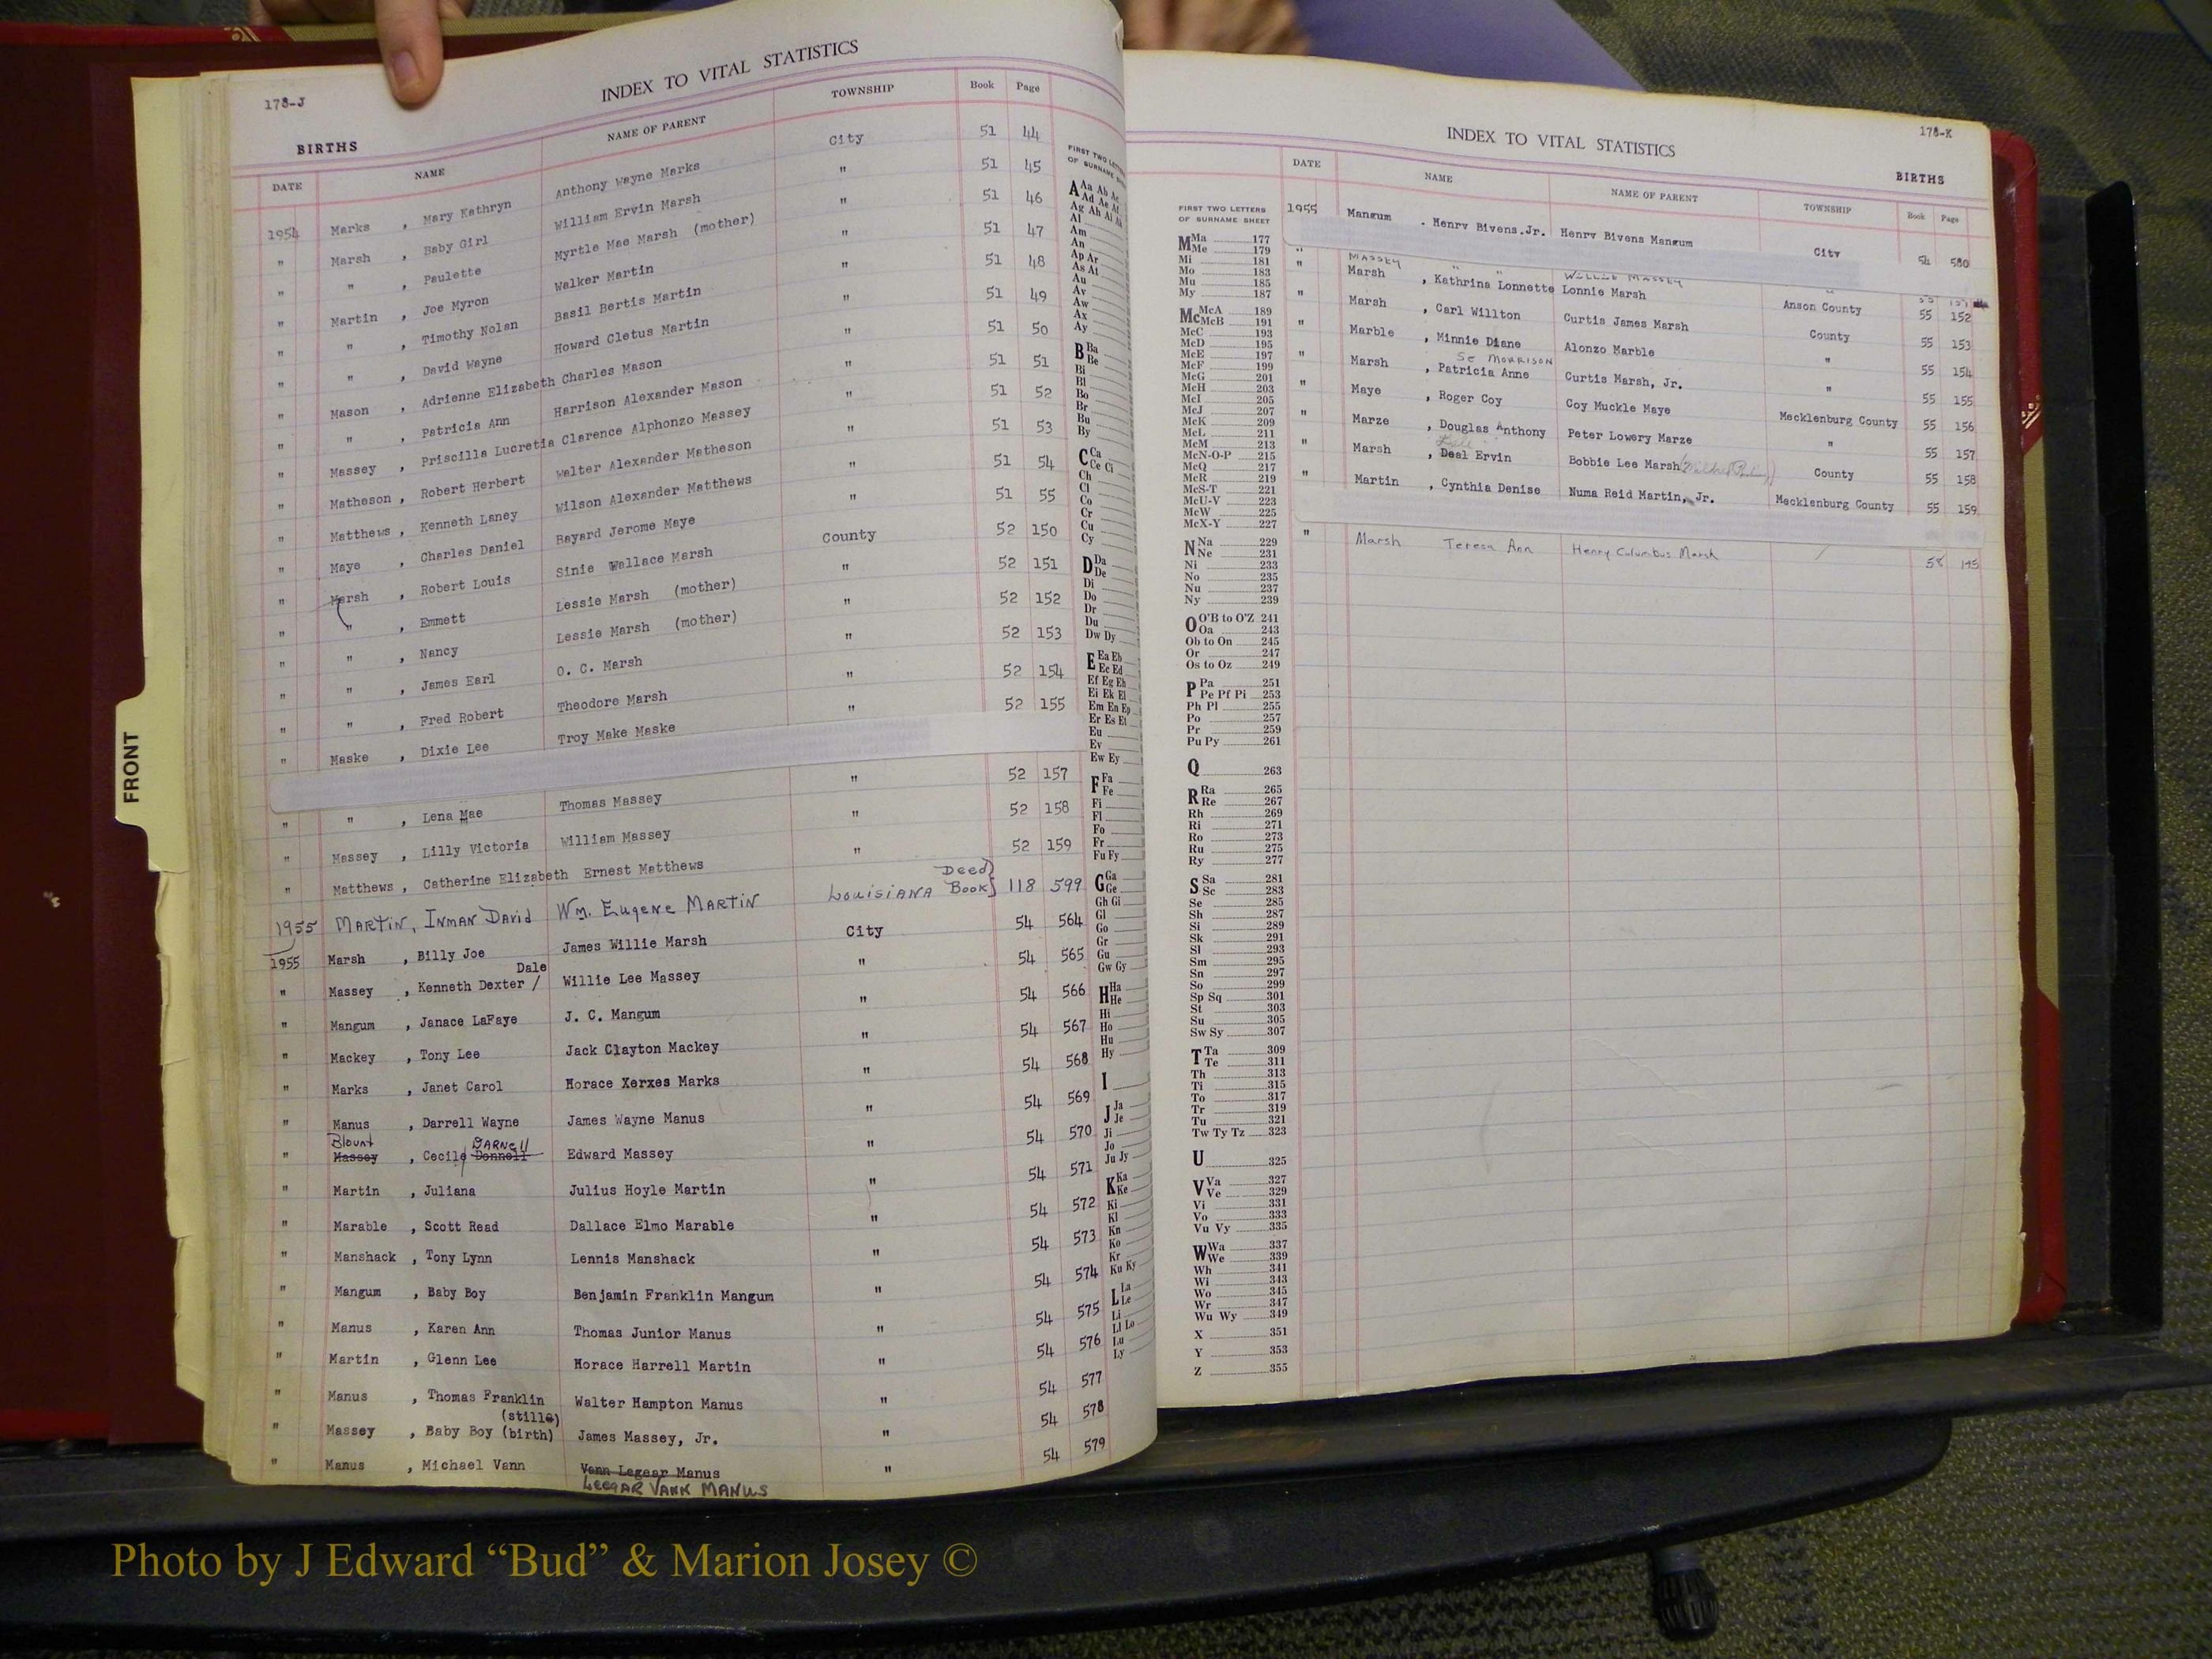 178-J
INDEX TO VITAL STATISTICS
BIRTHS
DATE NAME NAME OF PARENT TOWNSHIP Book Page
1954 Marks , Mary Kathryn Anthony Wayne Marks City 51 44
" Marsh , Baby Girl William Ervin Marsh " 51 45
" " , Paulette Myrtle Mae Marsh (mother) " 51 46
" Martin , Joe Myron Walker Martin " 51 47
" " , Timothy Nolan Basil Bertis Martin " 51 48
" " , David Wayne Howard Cletus Martin " 51 49
" Mason , Adrienne Elizabeth Charles Mason " 51 50
" " , Patricia Ann Harrison Alexander Mason " 51 51
" Massey , Priscilla Lucretia Clarence Alphonzo Massey " 51 52
" Matheson , Robert Herbert Walter Alexander Matheson " 51 53
" Matthews , Kenneth Laney Wilson Alexander Matthews " 51 54
" Maye , Charles Daniel Bayard Jerome Maye " 51 55
" Marsh , Robert Louis Sinie Wallace Marsh County 52 150
" " , Emmett Lessie Marsh (mother) " 52 151
" " , Nancy Lessie Marsh (mother) " 52 152
" " , James Earl O. C. Marsh " 52 153
" " , Fred Robert Theodore Marsh " 52 154
" Maske , Dixie Lee Troy Make Maske " 52 155
" " , Lena Mae Thomas Massey " 52 157
" Massey , Lilly Victoria William Massey " 52 158
" Matthews , Catherine Elizabeth Ernest Matthews " 52 159
1955 MARTIN, INMAN DAVID Wm. Eugene MARTIN LOUISIANA Deed Book} 118 599
1955 Marsh , Billy Joe James Willie Marsh City 54 564
" Massey , Kenneth Dexter / Dale Willie Lee Massey " 54 565
" Mangum , Janace LaFaye J. C. Mangum " 54 566
" Mackey , Tony Lee Jack Clayton Mackey " 54 567
" Marks , Janet Carol Horace Xerxes Marks " 54 568
" Manus , Darrell Wayne James Wayne Manus " 54 569
Blount DARNell
" Massey , Cecile Donnell Edward Massey " 54 570
" Martin , Juliana Julius Hoyle Martin " 54 571
" Marable , Scott Read Dallace Elmo Marable " 54 572
" Manshack , Tony Lynn Lennis Manshack " 54 573
" Mangum , Baby Boy Benjamin Franklin Mangum " 54 574
" Manus , Karen Ann Thomas Junior Manus " 54 575
" Martin , Glenn Lee Horace Harrell Martin " 54 576
" Manus , Thomas Franklin Walter Hampton Manus " 54 577
(still)
" Massey , Baby Boy (birth) James Massey, Jr. " 54 578
" Manus , Michael Vann Vann Legear Manus " 54 579
LeegAR VANN MANUS
FIRST TWO LETTERS
OF SURNAME SHEET
A Aa Ab Ac
Ad Ae Af
Ag Ah Ai Ak
Al
Am
An
Ap Ar
As At
Au
Av
Aw
Ax
Ay
B Ba
Be
Bi
Bl
Bo
Br
Bu
By
C Ca
Ce Ci
Ch
Cl
Co
Cr
Cu
Cy
D Da
De
Di
Do
Dr
Du
Dw Dy
E Ea Eb
Ec Ed
Ef Eg Eh
Ei Ek El
Em En Ep
Er Es Et
Eu
Ev
Ew Ey
F Fa
Fe
Fi
Fl
Fo
Fr
Fu Fy
G Ga
Ge
Gh Gi
Gl
Go
Gr
Gu
Gw Gy
H Ha
He
Hi
Ho
Hu
Hy
I
J Ja
Je
Ji
Jo
Ju Jy
K Ka
Ke
Ki
Kl
Kn
Ko
Kr
Ku Ky
L La
Le
Li
Ll Lo
Lu
Ly
FRONT
178-K
INDEX TO VITAL STATISTICS
BIRTHS
DATE NAME NAME OF PARENT TOWNSHIP Book Page
1955 Mangum , Henry Bivens,Jr. Henry Bivens Mangum City 54 580
" MASSEY " " WILLIE MASSEY
" Marsh , Kathrina Lonnette Lonnie Marsh Anson County 55 152
" Marsh , Carl Willton Curtis James Marsh County 55 153
" Marble , Minnie Diane Alonzo Marble " 55 154
Se MORRISON
" Marsh , Patricia Anne Curtis Marsh, Jr. " 55 155
" Maye , Roger Coy Coy Muckle Maye Mecklenburg County 55 156
" Marze , Douglas Anthony Peter Lowery Marze " 55 157
" Marsh , Deal Ervin Bobbie Lee Marsh County 55 158
" Martin , Cynthia Denise Numa Reid Martin, Jr. Mecklenburg County 55 159
" Marsh Teresa Ann Henry Columbus Marsh 58
FIRST TWO LETTERS
OF SURNAME SHEET
M Ma 177
Me 179
Mi 181
Mo 183
Mu 185
My 187
Mc McA 189
McB 191
McC 193
McD 195
McE 197
McF 199
McG 201
McH 203
McI 205
McJ 207
McK 209
McL 211
McM 213
McN-O-P 215
McQ 217
McR 219
McS-T 221
McU-V 223
McW 225
McX-Y 227
N Na 229
Ne 231
Ni 233
No 235
Nu 237
Ny 239
O O'B to O'Z 241
Oa 243
Ob to On 245
Or 247
Os to Oz 249
P Pa 251
Pe Pf Pi 253
Ph Pl 255
Po 257
Pr 259
Pu Py 261
Q 263
R Ra 265
Re 267
Rh 269
Ri 271
Ro 273
Ru 275
Ry 277
S Sa 281
Sc 283
Se 285
Sh 287
Si 289
Sk 291
Sl 293
Sm 295
Sn 297
So 299
Sp Sq 301
St 303
Su 305
Sw Sy 307
T Ta 309
Te 311
Th 313
Ti 315
To 317
Tr 319
Tu 321
Tw Ty Tz 323
U 325
V Va 327
Ve 329
Vi 331
Vo 333
Vu Vy 335
W Wa 337
We 339
Wh 341
Wi 343
Wo 345
Wr 347
Wu Wy 349
X 351
Y 353
Z 355
Photo by J Edward “Bud” & Marion Josey ©